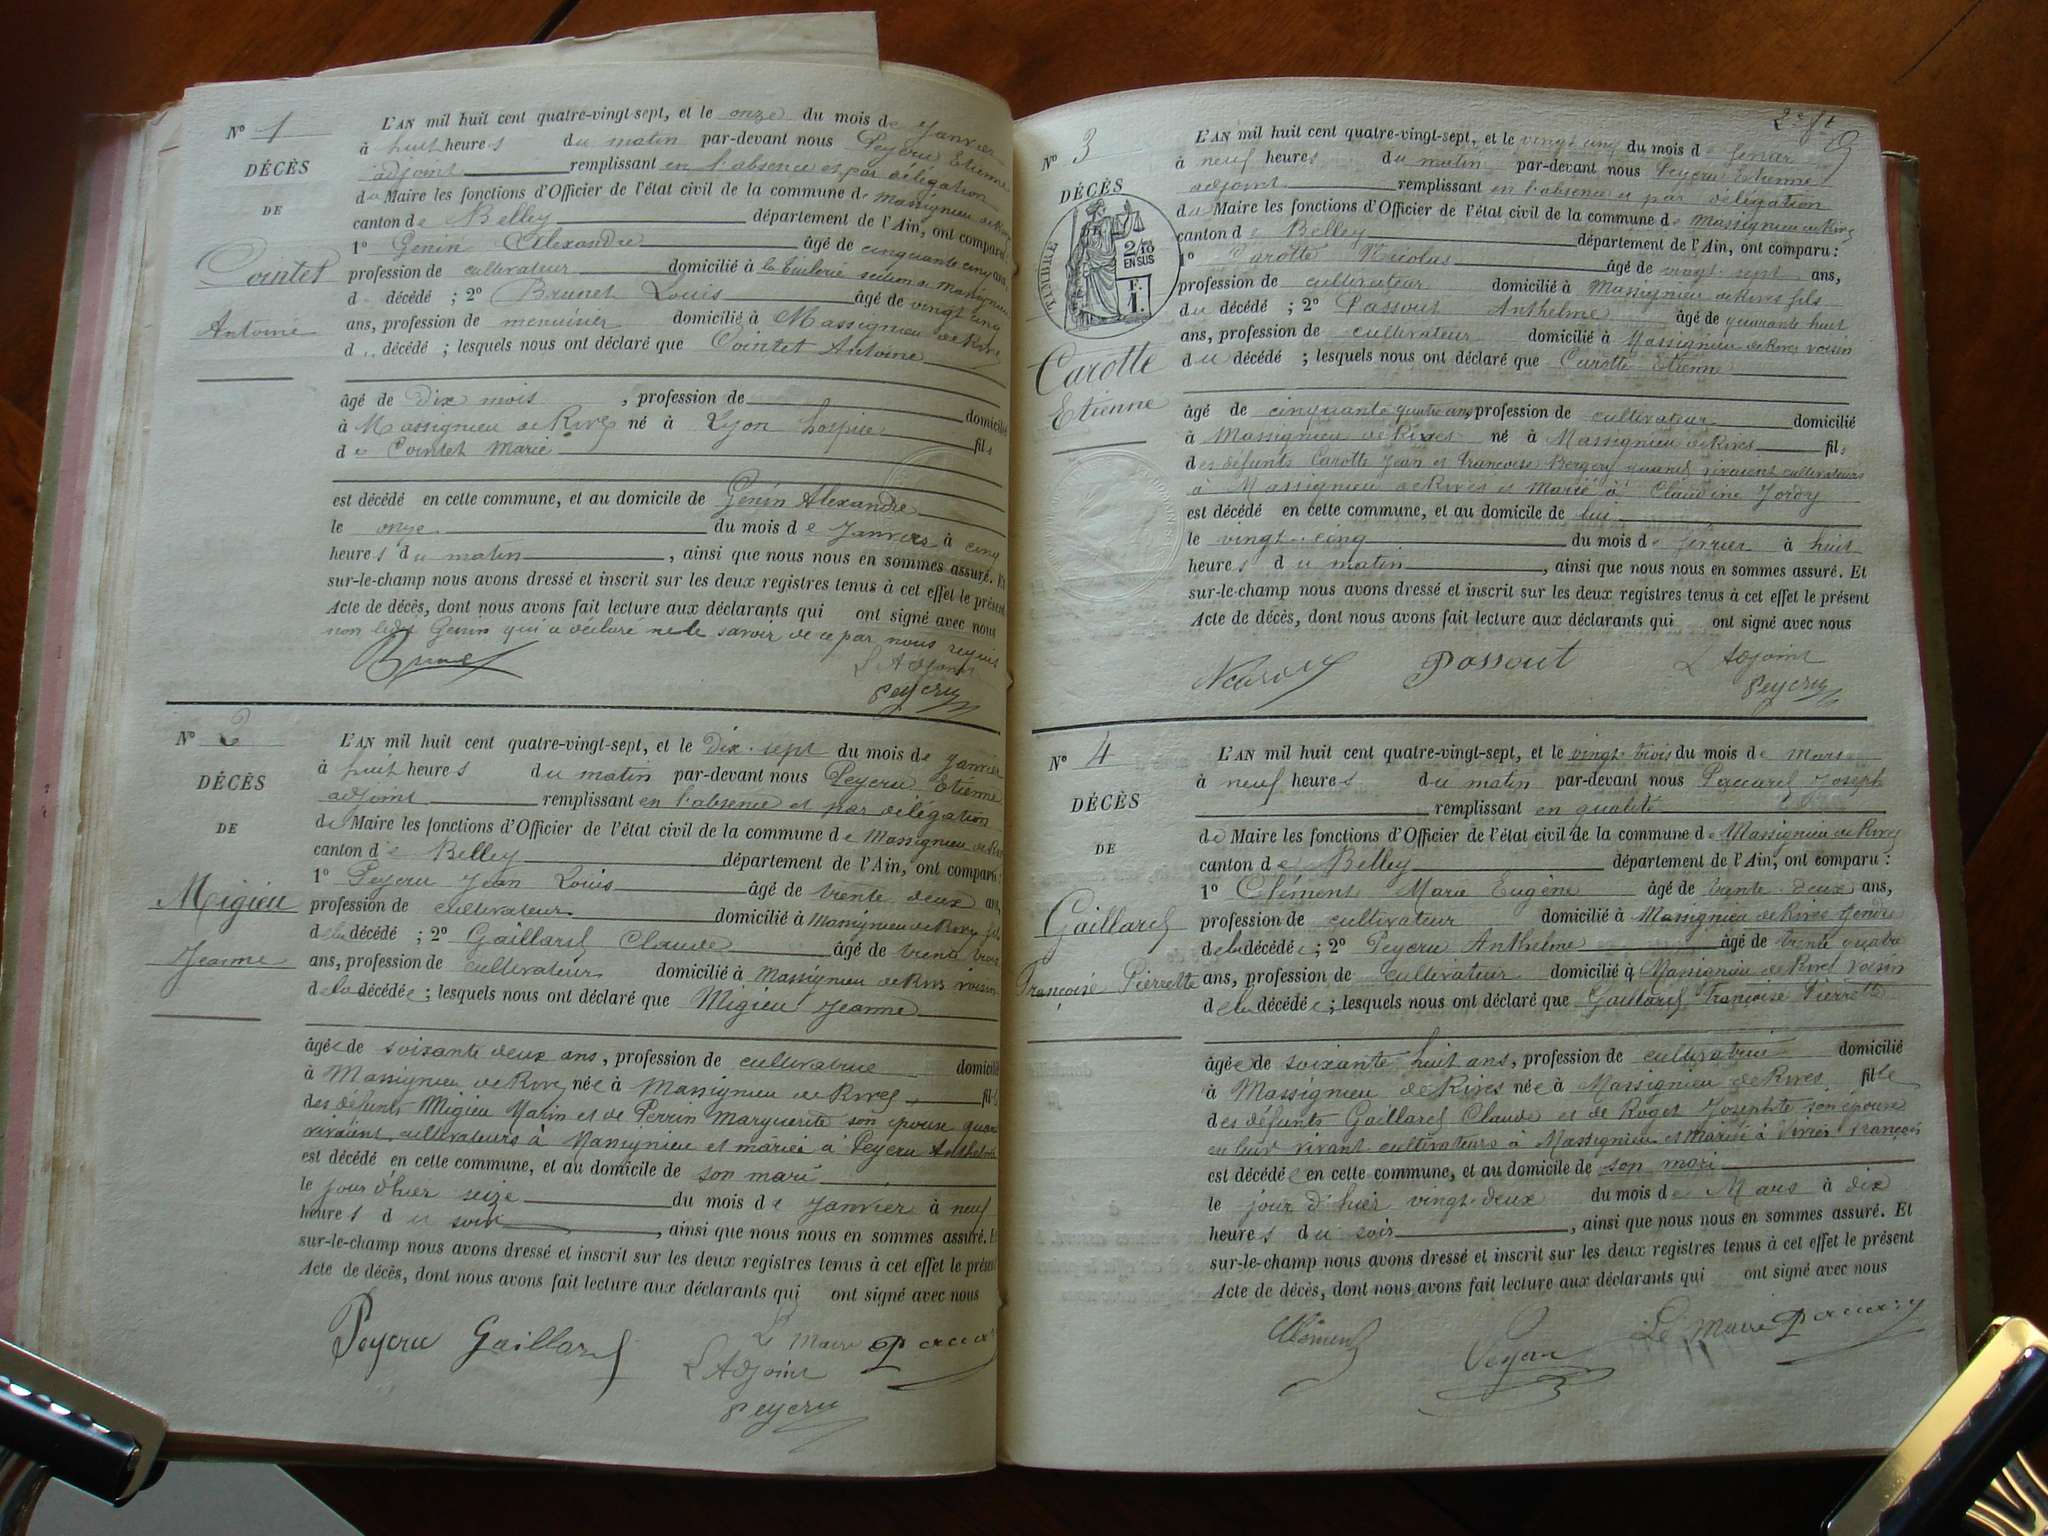 N° 1
DÉCÈS
DE
Cointet
Antoine
L'AN mil huit cent quatre-vingt-sept, et le onze du mois de Janvier
à huit heures du matin par-devant nous Peycru Etienne
adjoint remplissant en l'absence et par délégation
du Maire les fonctions d'Officier de l'état civil de la commune de Massignieu de Rives
canton de Belley département de l'Ain, ont comparu :
1° Genin Alexandre âgé de cinquante cinq ans,
profession de cultivateur domicilié à la tuilerie section de Massignieu
d décédé ; 2° Brunet Louis âgé de vingt cinq
ans, profession de menuisier domicilié à Massignieu de Rives
d décédé ; lesquels nous ont déclaré que Cointet Antoine
âgé de dix mois , profession de domicilié
à Massignieu de Rives né à Lyon hospice fils
de Cointet Marie
est décédé en cette commune, et au domicile de Genin Alexandre
le onze du mois de Janvier à cinq
heures du matin , ainsi que nous nous en sommes assuré. Et
sur-le-champ nous avons dressé et inscrit sur les deux registres tenus à cet effet le présent
Acte de décès, dont nous avons fait lecture aux déclarants qui ont signé avec nous
non ledit Genin qui a déclaré ne le savoir de ce par nous requis
Brunet L'Adjoint
Peycru
N° 2
DÉCÈS
DE
Migieu
Jeanne
L'AN mil huit cent quatre-vingt-sept, et le dix-sept du mois de janvier
à huit heures du matin par-devant nous Peycru Etienne
adjoint remplissant en l'absence et par délégation
de Maire les fonctions d'Officier de l'état civil de la commune de Massignieu de Rives
canton de Belley département de l'Ain, ont comparu :
1° Peycru Jean Louis âgé de trente deux ans,
profession de cultivateur domicilié à Massignieu de Rives fils
de la décédé ; 2° Gaillard Claude âgé de trente trois
ans, profession de cultivateur domicilié à Massignieu de Rives voisin
de la décédée ; lesquels nous ont déclaré que Migieu Jeanne
âgée de soixante deux ans, profession de cultivatrice domicilié
à Massignieu de Rives née à Massignieu de Rives fils
des défunts Migieu Matin et de Perrin Marguerite son épouse quand
vivaient cultivateurs à Massignieu et mariée à Peycru Anthelme
est décédé en cette commune, et au domicile de son mari
le jour d'hier seize du mois de Janvier à neuf
heures du soir , ainsi que nous nous en sommes assuré. Et
sur-le-champ nous avons dressé et inscrit sur les deux registres tenus à cet effet le présent
Acte de décès, dont nous avons fait lecture aux déclarants qui ont signé avec nous
Peycru Gaillard L Maire
L'Adjoint
Peycru
2e
N° 3
DÉCÈS
TIMBRE
2/10
EN SUS
F.
1.
Carotte
Etienne
L'AN mil huit cent quatre-vingt-sept, et le vingt cinq du mois de
à neuf heures du matin par-devant nous Peycru Etienne
adjoint remplissant en l'absence et par délégation
du Maire les fonctions d'Officier de l'état civil de la commune de Massignieu de Rives
canton de Belley département de l'Ain, ont comparu :
1° Carotte Nicolas âgé de vingt-sept ans,
profession de cultivateur domicilié à Massignieu de Rives fils
du décédé ; 2° Passout Anthelme âgé de quarante huit
ans, profession de cultivateur domicilié à Massignieu de Rives voisin
du décédé ; lesquels nous ont déclaré que Carotte Etienne
âgé de cinquante quatre ans, profession de cultivateur domicilié
à Massignieu de Rives né à Massignieu de Rives fils
des défunts Carotte Jean et Françoise Bergery quand vivaient cultivateurs
à Massignieu de Rives et Marié à Claudine Jordy
est décédé en cette commune, et au domicile de lui
le vingt-cinq du mois de février à huit
heures du matin , ainsi que nous nous en sommes assuré. Et
sur-le-champ nous avons dressé et inscrit sur les deux registres tenus à cet effet le présent
Acte de décès, dont nous avons fait lecture aux déclarants qui ont signé avec nous
Passout L'Adjoint
Peycru
N° 4
DÉCÈS
DE
Gaillard
Françoise Pierrette
L'AN mil huit cent quatre-vingt-sept, et le vingt-trois du mois de Mars
à neuf heures du matin par-devant nous Joseph
remplissant en qualité
de Maire les fonctions d'Officier de l'état civil de la commune de Massignieu de Rives
canton de Belley département de l'Ain, ont comparu :
1° Clément Marie Eugène âgé de trente-deux ans,
profession de cultivateur domicilié à Massignieu de Rives gendre
de la décédée ; 2° Peycru Anthelme âgé de trente quatre
ans, profession de cultivateur domicilié à Massignieu de Rives voisin
de la décédée ; lesquels nous ont déclaré que Gaillard Françoise Pierrette
âgée de soixante huit ans, profession de cultivatrice domicilié
à Massignieu de Rives née à Massignieu de Rives fille
des défunts Gaillard Claude et de Roget Josephte son épouse
en leur vivant cultivateurs à Massignieu et mariée à Vivier François
est décédée en cette commune, et au domicile de son mari
le jour d'hier vingt-deux du mois de Mars à dix
heures du soir , ainsi que nous nous en sommes assuré. Et
sur-le-champ nous avons dressé et inscrit sur les deux registres tenus à cet effet le présent
Acte de décès, dont nous avons fait lecture aux déclarants qui ont signé avec nous
Clément Le Maire